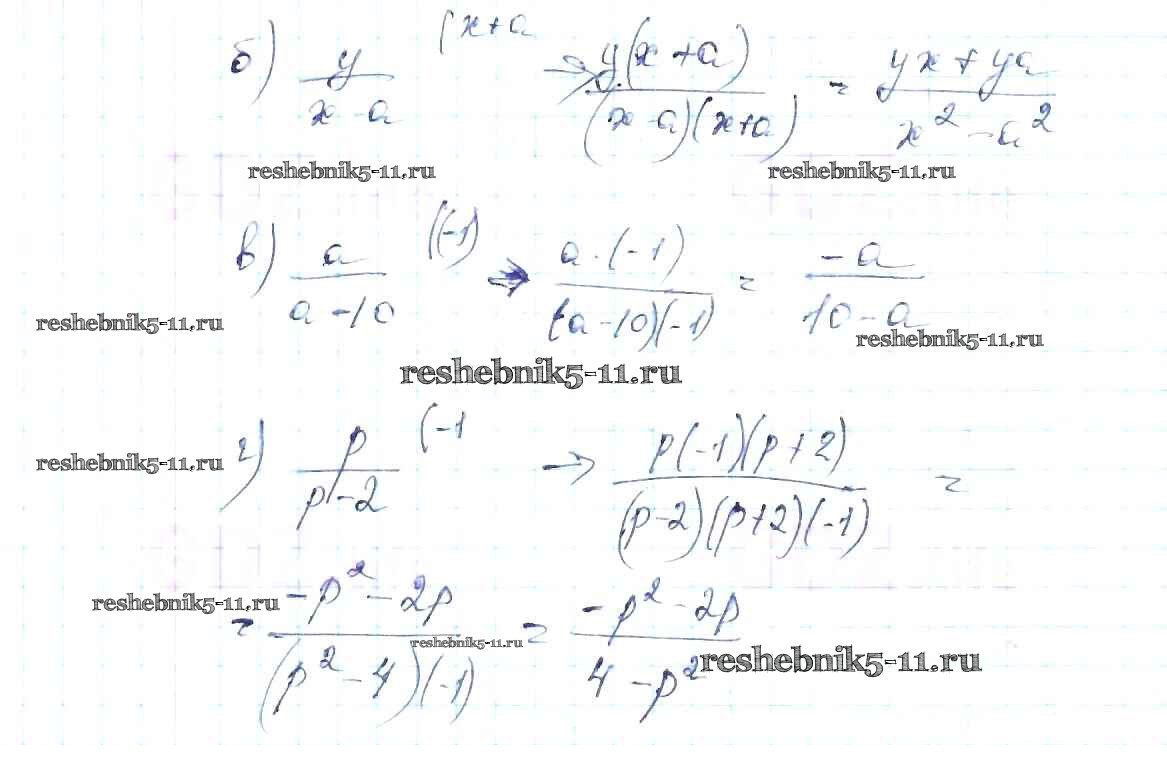 б) y/(x-a) (x+a → y(x+a)/((x-a)(x+a)) = (yx+ya)/(x²-a²)
reshebnik5-11.ru reshebnik5-11.ru
в) a/(a-10) ((-1) → a·(-1)/((a-10)(-1)) = -a/(10-a)
reshebnik5-11.ru reshebnik5-11.ru
reshebnik5-11.ru
г) p/(p-2) (-1 → p(-1)(p+2)/((p-2)(p+2)(-1)) =
reshebnik5-11.ru
= (-p²-2p)/((p²-4)(-1)) = (-p²-2p)/(4-p²)
reshebnik5-11.ru reshebnik5-11.ru reshebnik5-11.ru